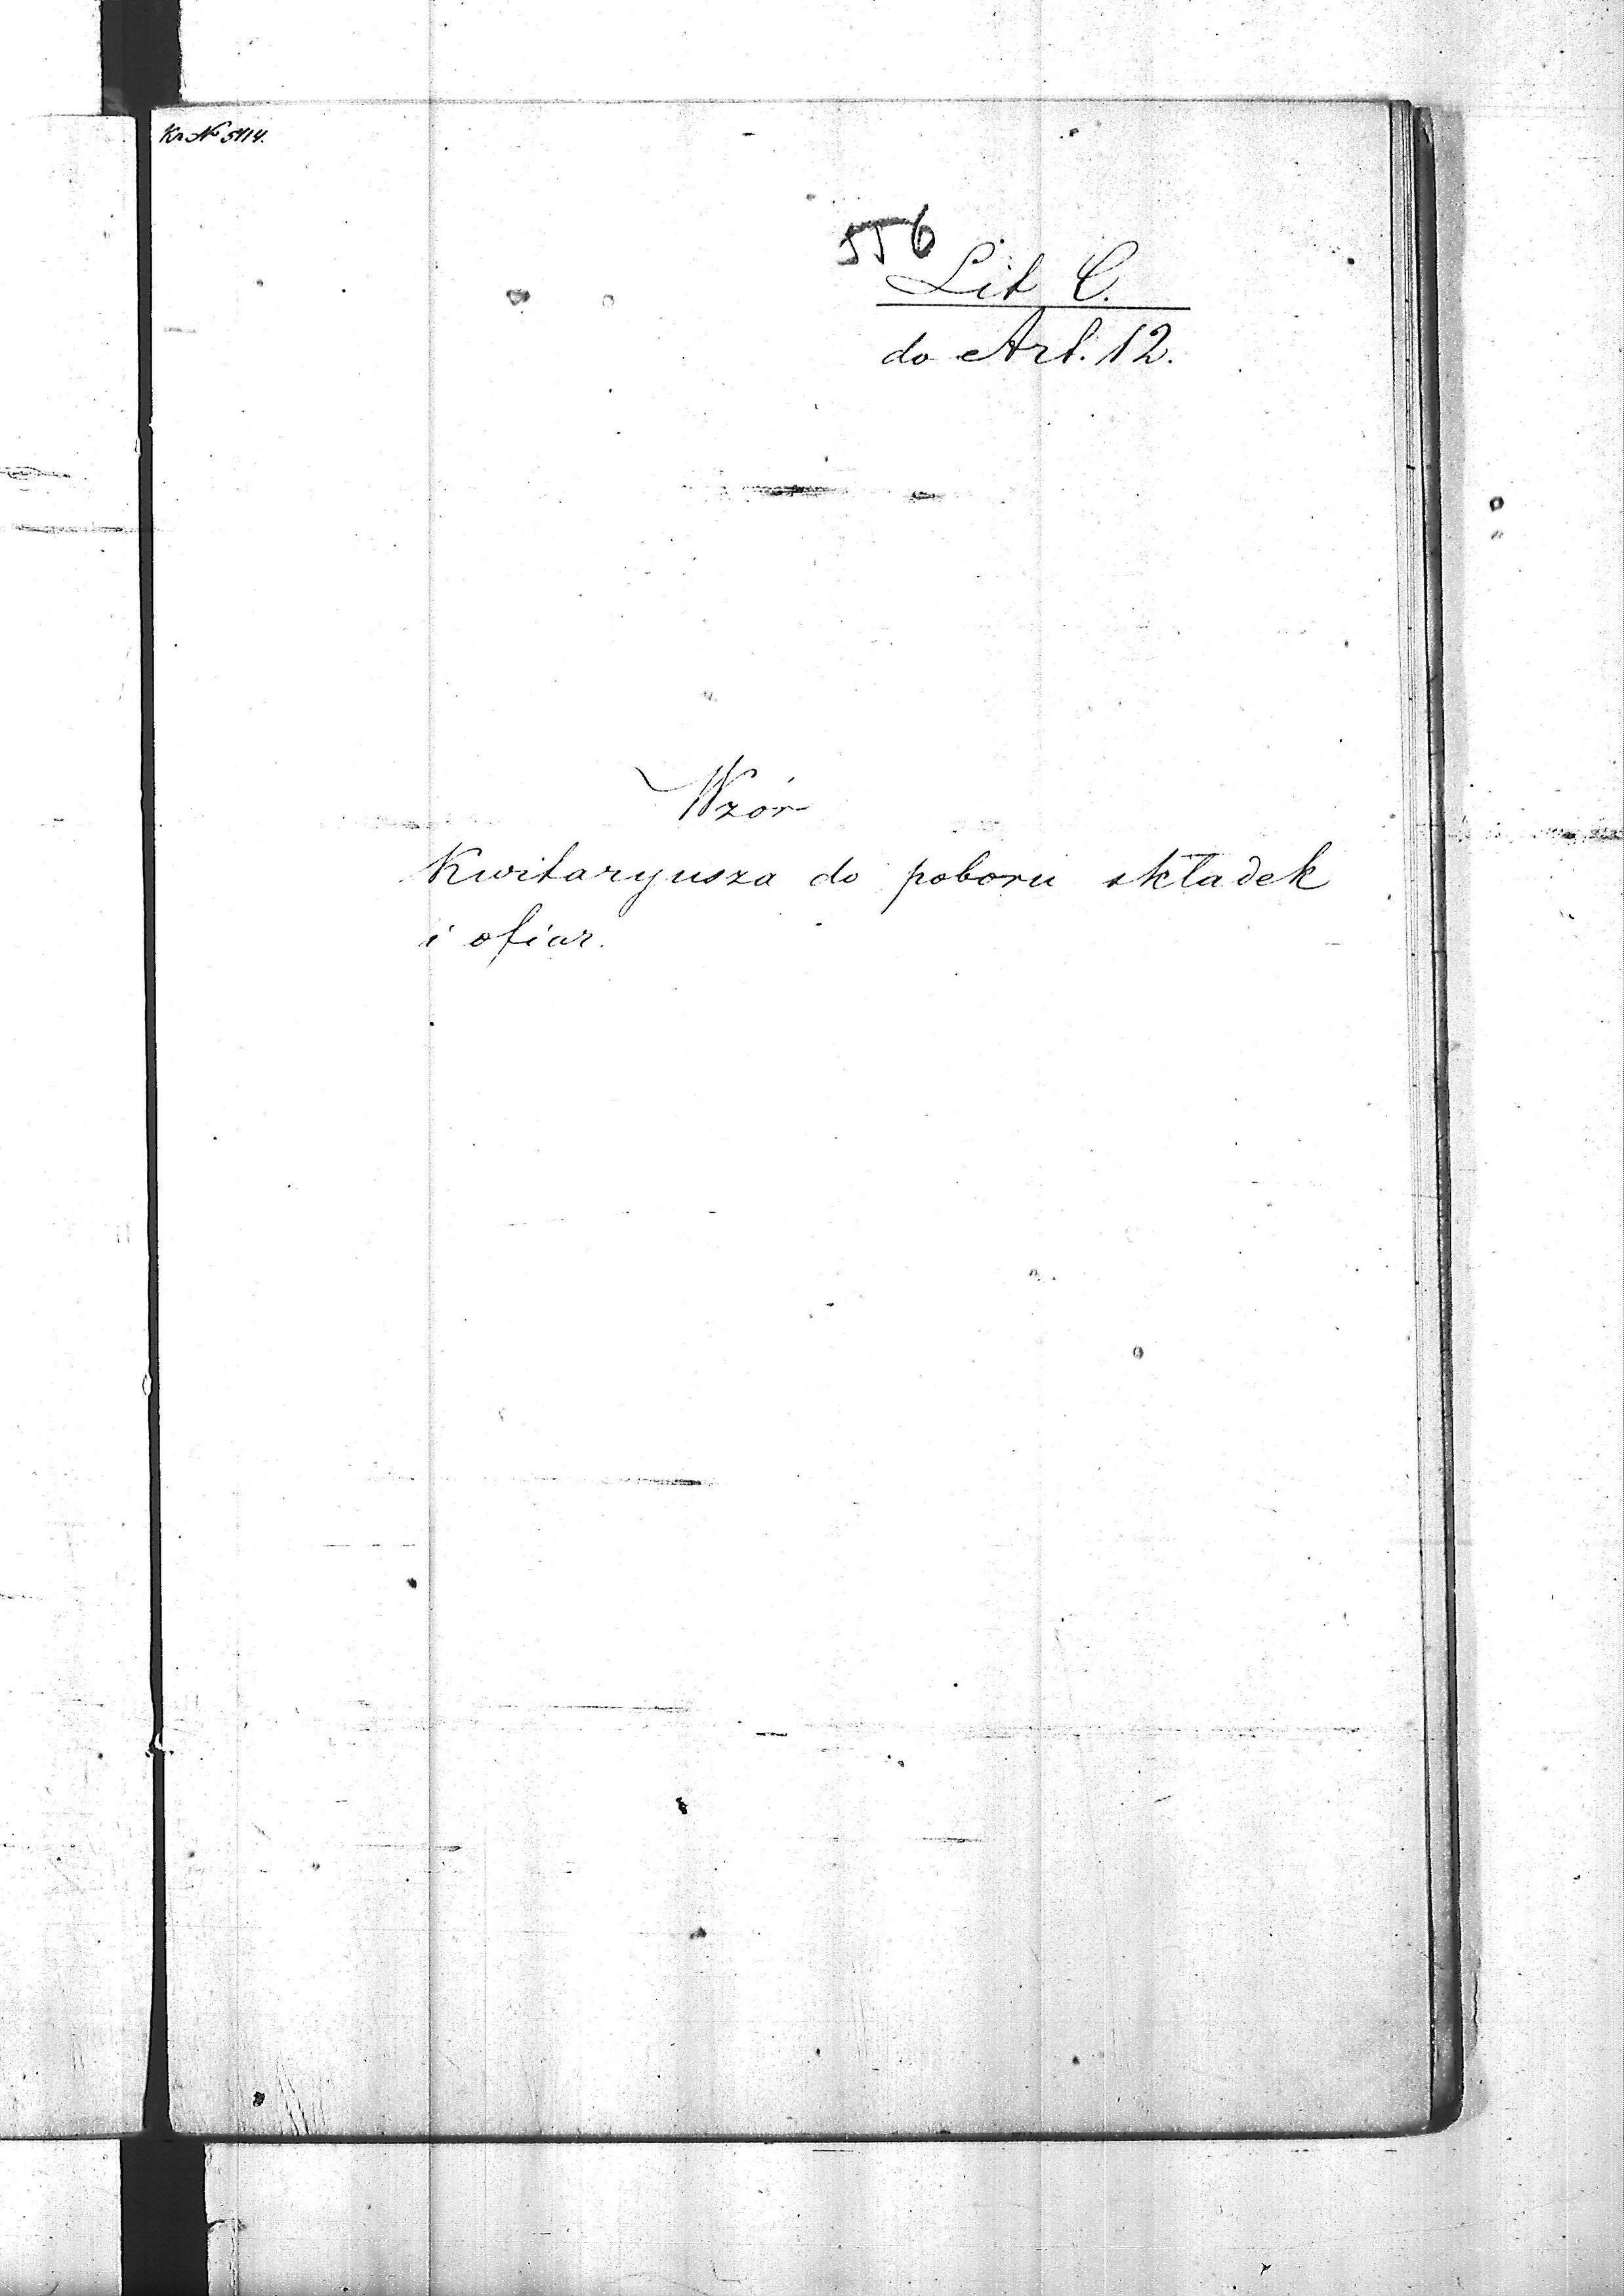 Kr. № 5114.
556
Lit C.
do Art. 12.
Wzór
Kwitaryusza do poboru składek
i ofiar.